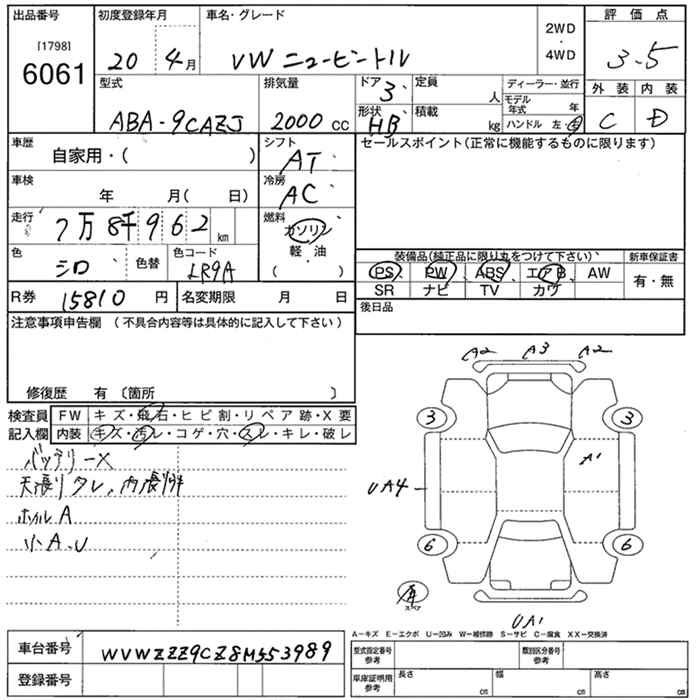 出品番号 初度登録年月 車名・グレード 2WD・4WD 評価点
[1798]
6061 20 4月 VW ニュービートル 3.5
型式 排気量 ドア 3 定員 人 ディーラー・並行 外装 内装
ABA-9CAZJ 2000 cc 形状 HB 積載 kg モデル年式 年 C D
ハンドル 左・右
車歴 自家用・( ) シフト AT セールスポイント(正常に機能するものに限ります)
車検 年 月( 日) 冷房 AC
走行 7万8千962 km 燃料 ガソリン
軽・油
( ・ )
色 シロ 色替 色コード LR9A 装備品(純正品に限り丸をつけて下さい) 新車保証書
PS PW ABS エアB AW 有・無
R券 15810 円 名変期限 月 日 SR ナビ TV カワ
後日品
注意事項申告欄 (不具合内容等は具体的に記入して下さい)
修復歴 有 〔箇所 〕
検査員 FW キズ・飛石・ヒビ割・リペア跡・X要
記入欄 内装 キズ・汚レ・コゲ・穴・スレ・キレ・破レ
バッテリーX
天張りタレ、内張
ホイルA
小A.U
A2 A3 A2
3 3
A1
UA4
6 6
スペア
UA1
A-キズ E-エクボ U-凹み W-補修跡 S-サビ C-腐食 XX-交換済
車台番号 WVWZZZ9CZ8M553989 型式指定番号 参考 類別区分番号 参考
登録番号 車庫証明用 参考 長さ cm 幅 cm 高さ cm